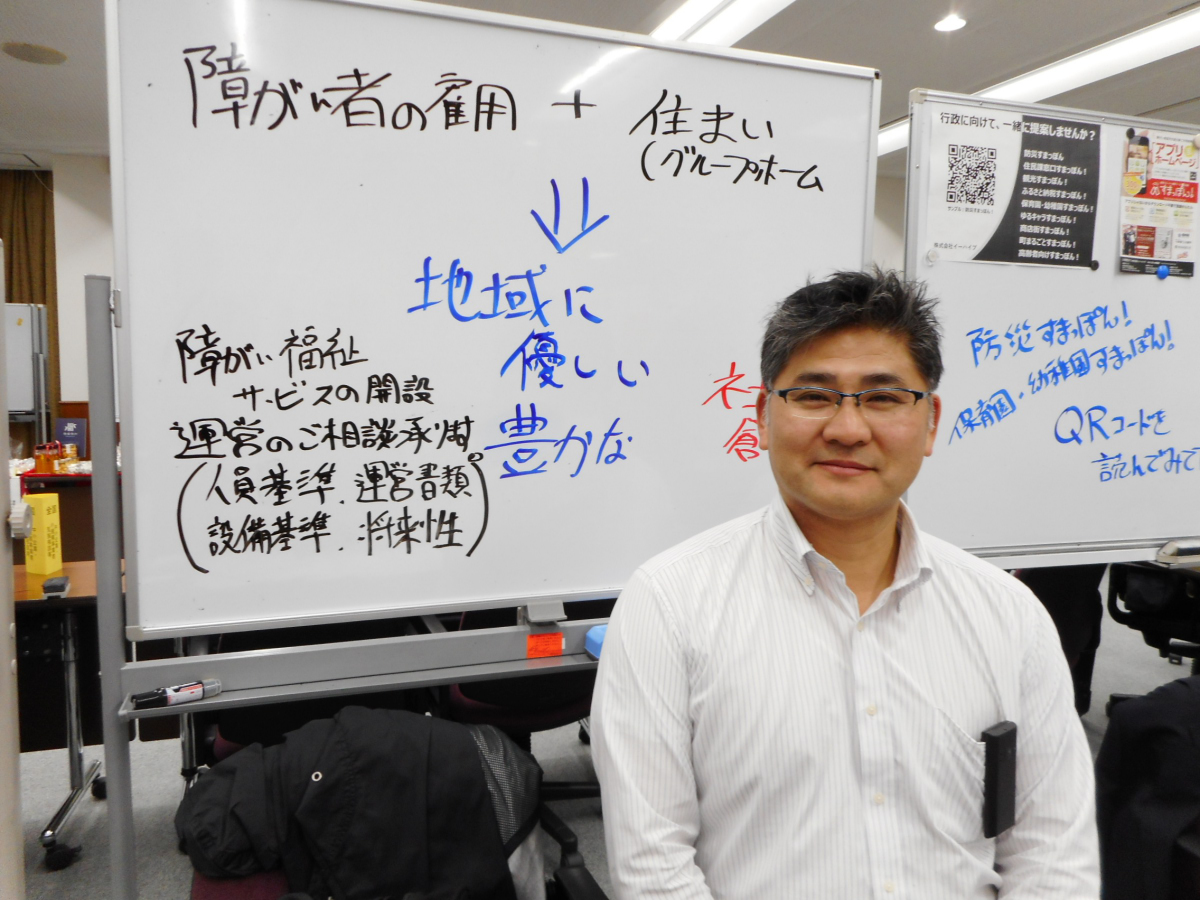 障がい者の雇用 + 住まい
(グループホーム
地域に
優しい
豊かな
障がい福祉
サービスの開設
運営のご相談承ります。
(人員基準、運営書類
設備基準、将来性)
ネ
創
行政に向けて、一緒に提案しませんか?
防災すまっぽん
住民課窓口すまっぽん!
観光すまっぽん!
ふるさと納税すまっぽん!
保育園・幼稚園すまっぽん!
ゆるキャラすまっぽん!
商店街すまっぽん!
町まるごとすまっぽん!
高齢者向けすまっぽん!
「アプリ
ホームページ」
すまっぽん!
防災すまっぽん!
保育園・幼稚園すまっぽん!
QRコードを
読んでみて